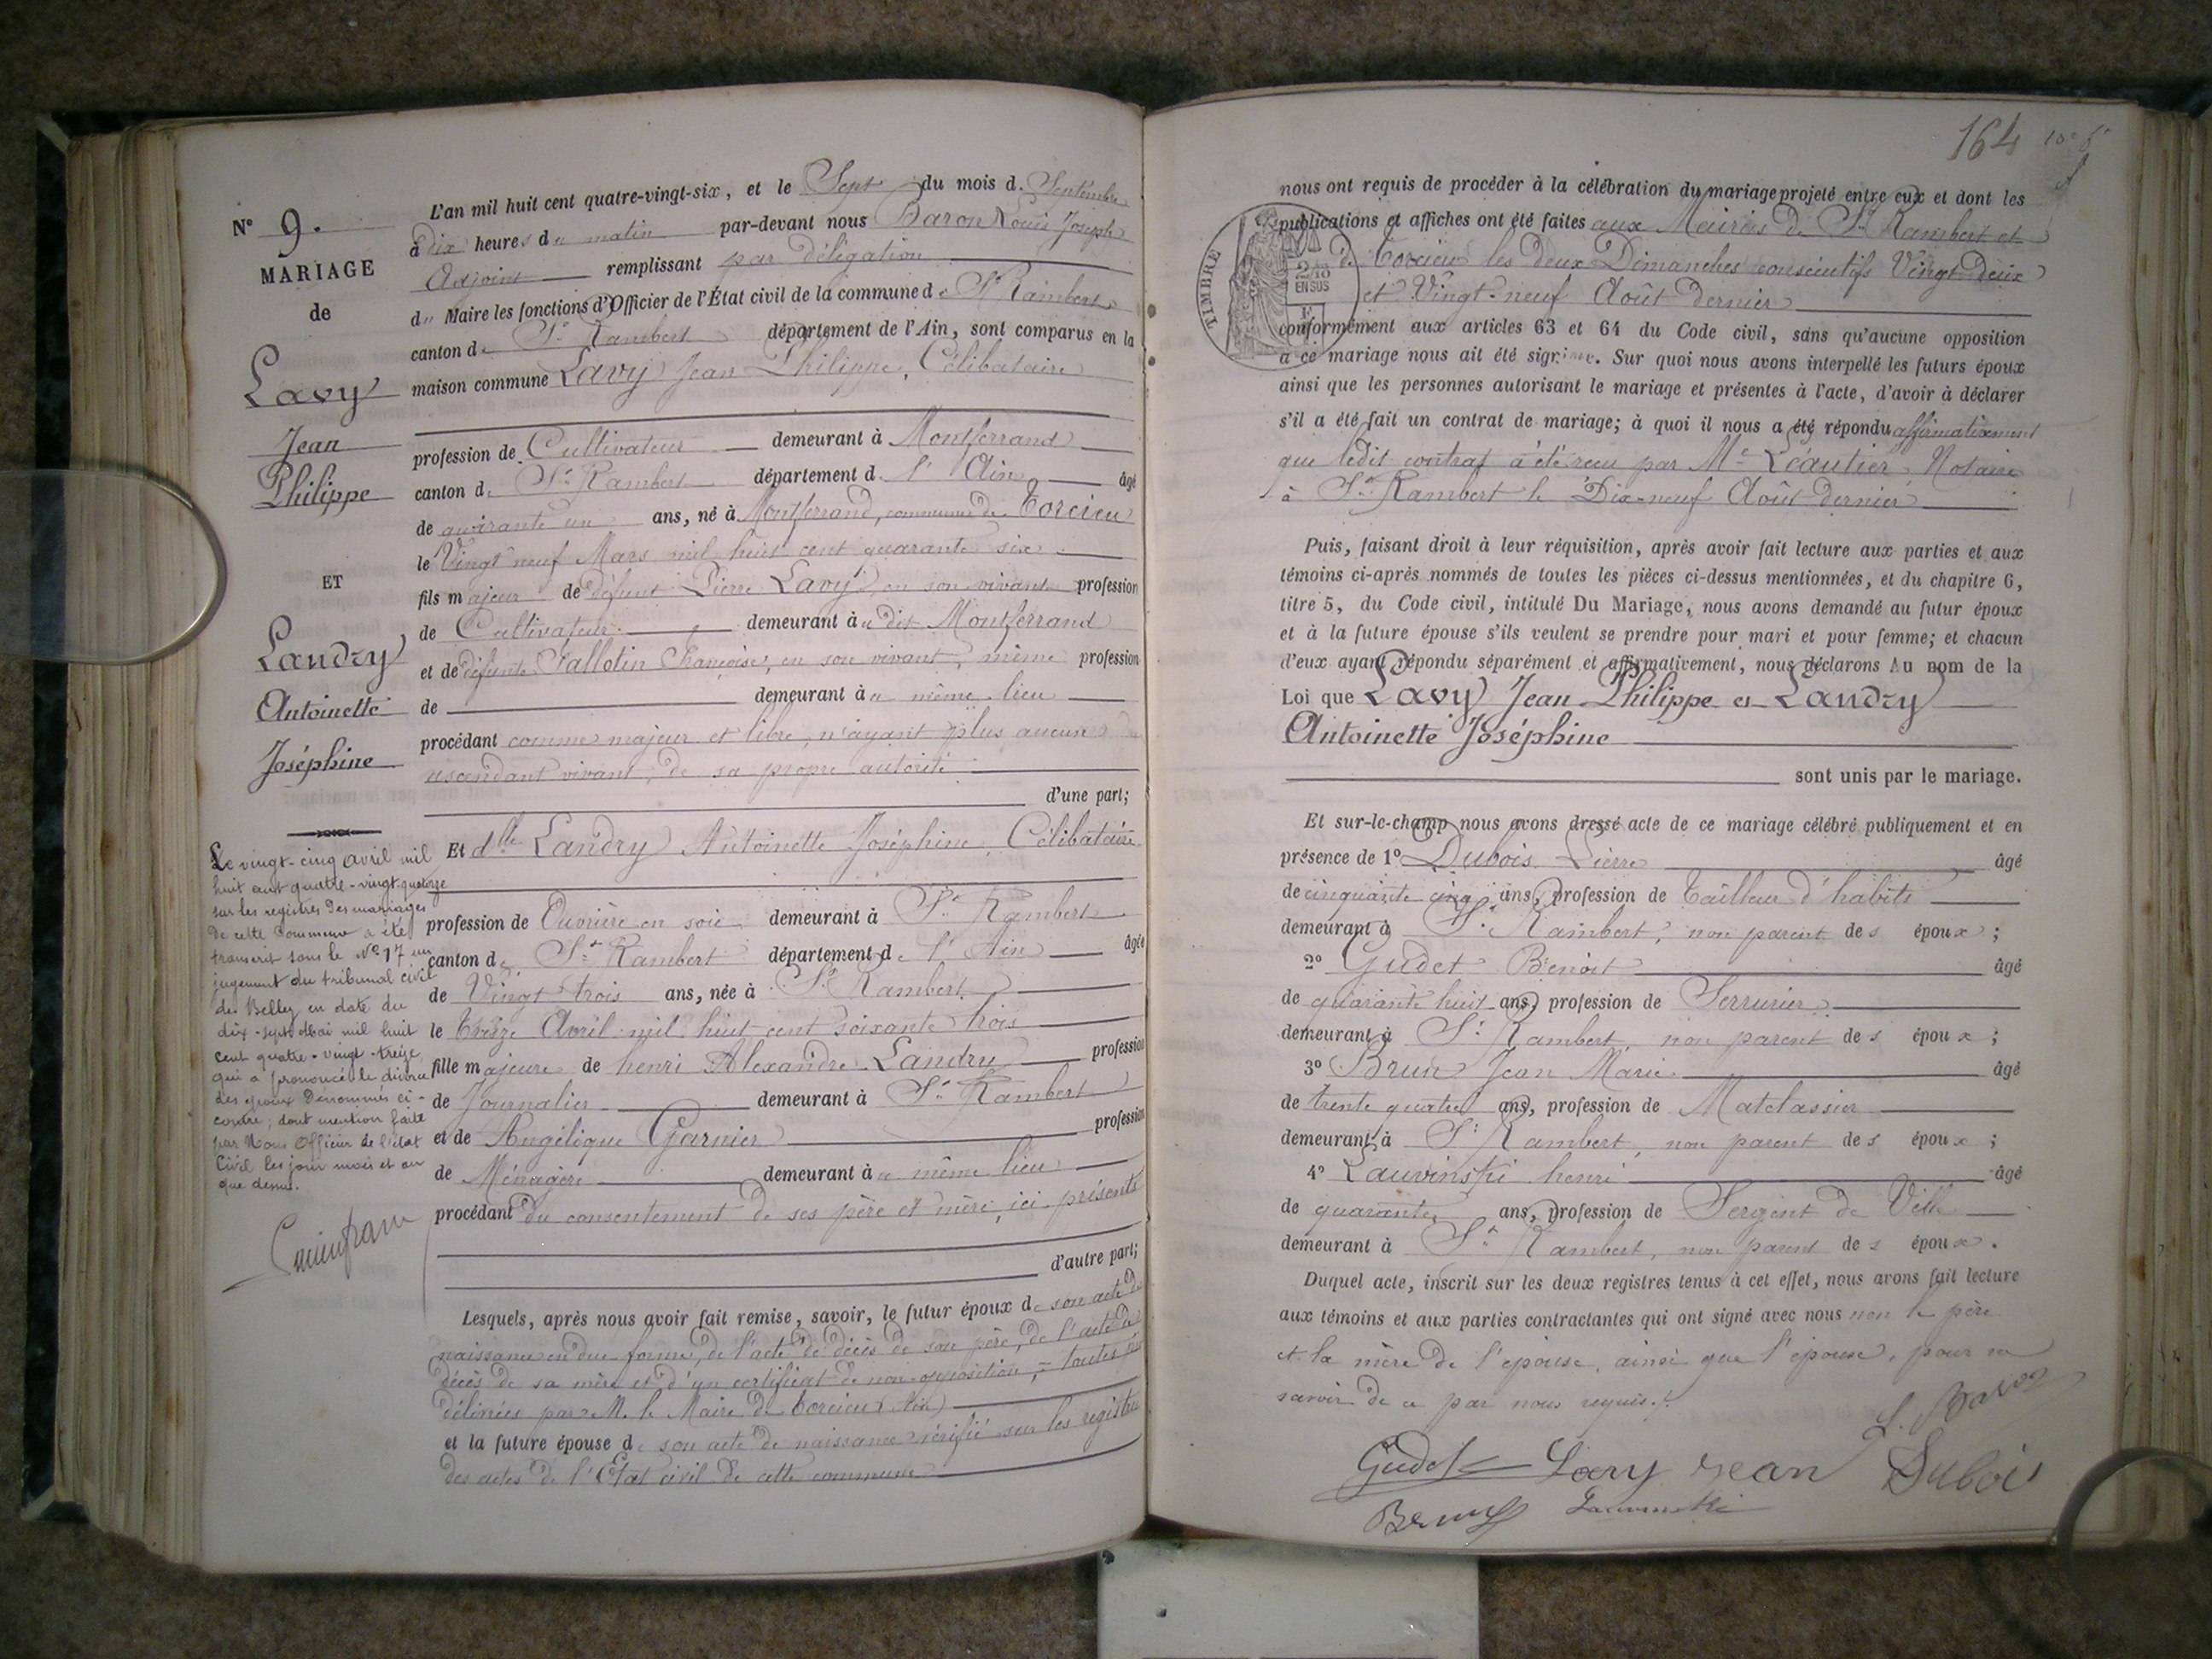 N° 9.
MARIAGE
de
Lavy
Jean
Philippe
ET
Landry
Antoinette
Joséphine
Le vingt-cinq avril mil
huit cent quatre-vingt-quatorze
sur les registres des mariages
de cette Commune a été
transcrit sous le N° 17 un
jugement du tribunal civil
de Belley en date du
dix-sept Mai mil huit
cent quatre-vingt-treize
qui a prononcé le divorce
des époux dénommés ci-
contre; dont mention faite
par Nous Officier de l'état
Civil les jour mois et an
que dessus.
L'an mil huit cent quatre-vingt-six, et le Sept du mois d. Septembre
à dix heures du matin par-devant nous Baron Louis Joseph
Adjoint remplissant par délégation
du Maire les fonctions d'Officier de l'État civil de la commune de St Rambert
canton de St Rambert département de l'Ain, sont comparus en la
maison commune Lavy Jean Philippe, Célibataire
profession de Cultivateur demeurant à Montferrand
canton de St Rambert département d. l'Ain âgé
de quarante un ans, né à Montferrand, commune de Torcieu
le Vingt neuf Mars mil huit cent quarante six
fils majeur de défunt Pierre Lavy, en son vivant profession
de Cultivateur demeurant à dit Montferrand
et de défunte Françoise, en son vivant, même profession
de demeurant à même lieu
procédant comme majeur et libre, n'ayant plus aucun
ascendant vivant, de sa propre autorité
d'une part;
Et dlle Landry Antoinette Joséphine, Célibataire
profession de Ouvrière en soie demeurant à St Rambert
canton de St Rambert département de l'Ain âgée
de Vingt trois ans, née à St Rambert
le Treize Avril mil huit cent soixante trois
fille majeure de henri Alexandre Landry profession
de Journalier demeurant à St Rambert
et de Angélique Garnier profession
de Ménagère demeurant à même lieu
procédant du consentement de ses père et mère, ici présents
d'autre part;
Lesquels, après nous avoir fait remise, savoir, le futur époux de son acte de
naissance en due forme, de l'acte de décès de son père, de l'acte de
décès de sa mère et d'un certificat de non-opposition, toutes
délivrées par M. le Maire de Torcieu (Ain)
et la future épouse de son acte de naissance vérifié sur les registres
des actes de l'État civil de cette commune
164
nous ont requis de procéder à la célébration du mariage projeté entre eux et dont les
publications et affiches ont été faites aux Mairies de St Rambert et
de Torcieu les deux Dimanches consécutifs Vingt deux
et Vingt-neuf Août dernier
TIMBRE
2/10
EN SUS
conformément aux articles 63 et 64 du Code civil, sans qu'aucune opposition
à ce mariage nous ait été signifiée. Sur quoi nous avons interpellé les futurs époux
ainsi que les personnes autorisant le mariage et présentes à l'acte, d'avoir à déclarer
s'il a été fait un contrat de mariage; à quoi il nous a été répondu affirmativement
que ledit contrat a été reçu par Me Léautier Notaire
à St Rambert le Dix-neuf Août dernier
Puis, faisant droit à leur réquisition, après avoir fait lecture aux parties et aux
témoins ci-après nommés de toutes les pièces ci-dessus mentionnées, et du chapitre 6,
titre 5, du Code civil, intitulé Du Mariage, nous avons demandé au futur époux
et à la future épouse s'ils veulent se prendre pour mari et pour femme; et chacun
d'eux ayant répondu séparément et affirmativement, nous déclarons Au nom de la
Loi que Lavy Jean Philippe et Landry
Antoinette Joséphine
sont unis par le mariage.
Et sur-le-champ nous avons dressé acte de ce mariage célébré publiquement et en
présence de 1° Dubois Pierre âgé
de cinquante cinq ans, profession de Tailleur d'habits
demeurant à St Rambert, non parent des époux;
2° Gudet Benoit âgé
de quarante huit ans, profession de Serrurier
demeurant à St Rambert, non parent des époux;
3° Brun Jean Marie âgé
de trente quatre ans, profession de Matelassier
demeurant à St Rambert, non parent des époux;
4° Lauvinski henri âgé
de quarante ans, profession de Sergent de Ville
demeurant à St Rambert, non parent des époux.
Duquel acte, inscrit sur les deux registres tenus à cet effet, nous avons fait lecture
aux témoins et aux parties contractantes qui ont signé avec nous non le père
et la mère de l'épouse, ainsi que l'épouse, pour ne
savoir de ce par nous requis.
L. Baron
Gudet Lavy Jean Dubois
Brun Lauvinski